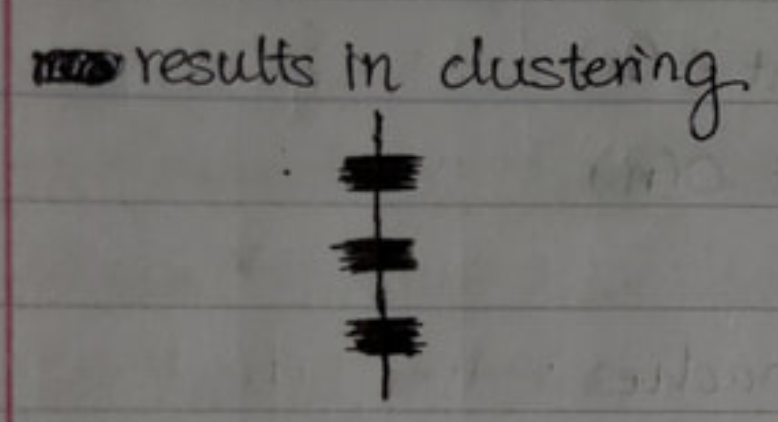 results in clustering